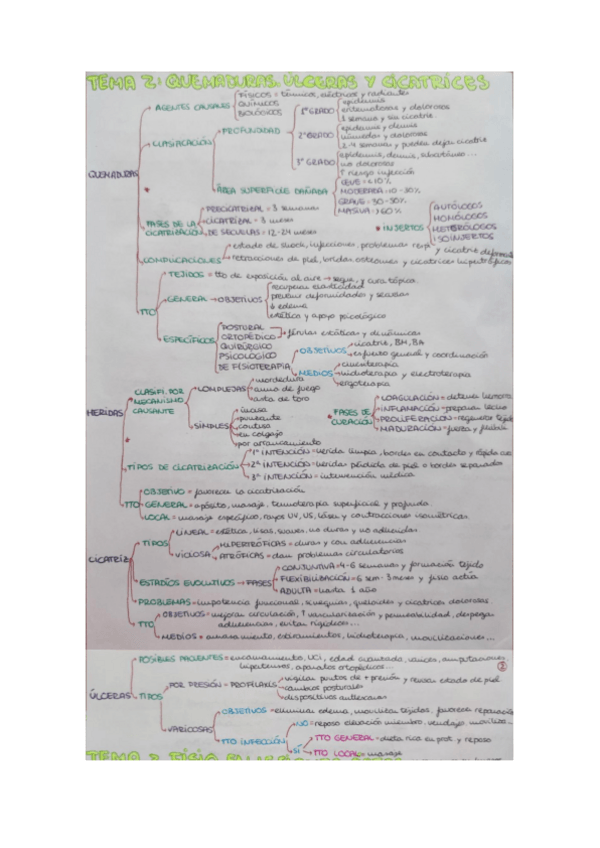 TEMA 2: QUEMADURAS, ÚLCERAS Y CICATRICES
QUEMADURAS
AGENTES CAUSALES
FÍSICOS = térmicos, eléctricos y radiantes
QUÍMICOS
BIOLÓGICOS
CLASIFICACIÓN
PROFUNDIDAD
1º GRADO
epidermis
eritematosas y dolorosas
1 semana y sin cicatriz
2º GRADO
epidermis y dermis
húmedas y dolorosas
2-4 semanas y pueden dejar cicatriz
3º GRADO
epidermis, dermis, subcutáneo...
no dolorosas
↑ riesgo infección
ÁREA SUPERFICIE DAÑADA
LEVE = <10%
MODERADA = 10-30%
GRAVE = 30-50%
MASIVA = >60%
FASES DE LA CICATRIZACIÓN
PRECICATRIZAL = 3 semanas
CICATRIZAL = 3 meses
DE SECUELAS = 12-24 meses
* INJERTOS
AUTÓLOGOS
HOMÓLOGOS
HETERÓLOGOS
ISOINJERTOS
COMPLICACIONES
estado de shock, infecciones, problemas resp y cicatriz deforma
retracciones de piel, bridas, osteomas y cicatrices hipertróficas
TTO
TEJIDOS = tto de exposición al aire → segur. y cura tópica
GENERAL → OBJETIVOS
recuperar elasticidad
prevenir deformidades y secuelas
↓ edema
estética y apoyo psicológico
ESPECÍFICOS
POSTURAL
ORTOPÉDICO
férulas estáticas y dinámicas
QUIRÚRGICO
PSICOLÓGICO
DE FISIOTERAPIA
OBJETIVOS
cicatriz, BM, BA
esfuerzo general y coordinación
MEDIOS
cinesiterapia
hidroterapia y electroterapia
ergoterapia
HERIDAS
CLASIFI. POR MECANISMO CAUSANTE
COMPLEJAS
mordedura
arma de fuego
asta de toro
SIMPLES
incisa
punzante
contusa
en colgajo
por arrancamiento
* FASES DE CURACIÓN
COAGULACIÓN = detener hemorra
INFLAMACIÓN = preparar lecho
PROLIFERACIÓN = regenerar tejido
MADURACIÓN = fuerza y flexib
TIPOS DE CICATRIZACIÓN
1ª INTENCIÓN = herida limpia, bordes en contacto y rápida cu
2ª INTENCIÓN = heridas pérdida de piel o bordes separados
3ª INTENCIÓN = intervención médica
TTO
OBJETIVO = favorecer la cicatrización
GENERAL = apósito, masaje, termoterapia superficial y profunda
LOCAL = masaje específico, rayos UV, US, láser y contracciones isométricas
CICATRIZ
TIPOS
LINEAL = estética, lisas, suaves, no duras y no adheridas
VICIOSA
HIPERTRÓFICAS = duras y con adherencias
ATRÓFICAS = dan problemas circulatorios
ESTADÍOS EVOLUTIVOS → FASES
CONJUNTIVA = 4-6 semanas y formación tejido
FLEXIBILIZACIÓN = 6 sem-3 meses y fisio activa
ADULTA = hasta 1 año
PROBLEMAS = impotencia funcional, sinequias, queloides y cicatrices dolorosas
TTO
OBJETIVOS = mejorar circulación, ↑ vascularización y permeabilidad, despegar
adherencias, evitar rigideces...
MEDIOS = amasamiento, estiramientos, hidroterapia, movilizaciones...
ÚLCERAS
POSIBLES PACIENTES = encamamiento, UCI, edad avanzada, varices, amputaciones,
hipertensos, aparatos ortopédicos...
2
TIPOS
POR PRESIÓN → PROFILAXIS
vigilar puntos de + presión y revisar estado de piel
cambios posturales
dispositivos antiescaras
VARICOSAS
OBJETIVOS = eliminar edema, movilizar tejidos, favorece reparación
TTO INFECCIÓN
NO = reposo elevación miembro, vendaje, moviliza...
SÍ
TTO GENERAL = dieta rica en prot. y reposo
TTO LOCAL = masaje